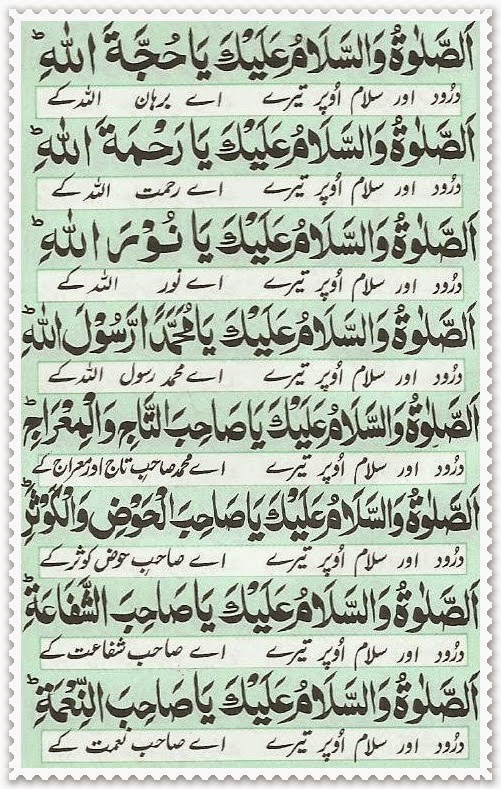 اَلصَّلٰوةُ وَالسَّلَامُ عَلَيْكَ يَا حُجَّةَ اللهِ ؕ
درُود اور سلام اُوپر تیرے اے برہان اللہ کے
اَلصَّلٰوةُ وَالسَّلَامُ عَلَيْكَ يَا رَحْمَةَ اللهِ ؕ
درُود اور سلام اُوپر تیرے اے رحمت اللہ کے
اَلصَّلٰوةُ وَالسَّلَامُ عَلَيْكَ يَا نُوْرَ اللهِ ؕ
درُود اور سلام اُوپر تیرے اے نور اللہ کے
اَلصَّلٰوةُ وَالسَّلَامُ عَلَيْكَ يَا مُحَمَّدًا رَّسُوْلَ اللهِ ؕ
درُود اور سلام اُوپر تیرے اے محمد رسول اللہ کے
اَلصَّلٰوةُ وَالسَّلَامُ عَلَيْكَ يَا صَاحِبَ التَّاجِ وَالْمِعْرَاجِ ؕ
درُود اور سلام اُوپر تیرے اے محمد صاحبِ تاج اور معراج کے
اَلصَّلٰوةُ وَالسَّلَامُ عَلَيْكَ يَا صَاحِبَ الْحَوْضِ وَالْكَوْثَرِ ؕ
درُود اور سلام اُوپر تیرے اے صاحبِ حوض کوثر کے
اَلصَّلٰوةُ وَالسَّلَامُ عَلَيْكَ يَا صَاحِبَ الشَّفَاعَةِ ؕ
درُود اور سلام اُوپر تیرے اے صاحب شفاعت کے
اَلصَّلٰوةُ وَالسَّلَامُ عَلَيْكَ يَا صَاحِبَ النِّعْمَةِ ؕ
درُود اور سلام اُوپر تیرے اے صاحب نعمت کے